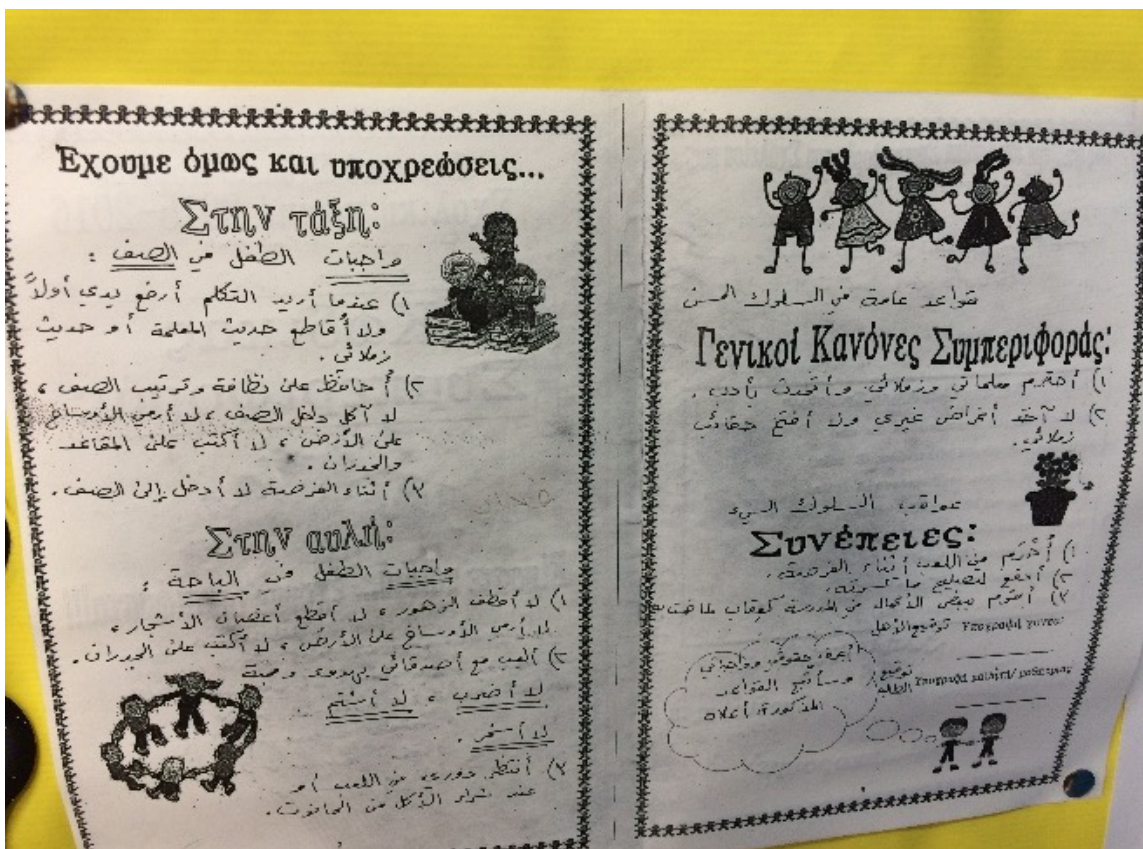 Έχουμε όμως και υποχρεώσεις...
Στην τάξη:
واجبات الطفل في الصف :
١) عندما أريد التكلم أرفع يدي أولاً
ولا أقاطع حديث المعلمة أو حديث
زملائي .
٢) أحافظ على نظافة وترتيب الصف ،
لا آكل داخل الصف ، لا أرمي الأوساخ
على الأرض ، لا أكتب على المقاعد
والجدران .
٣) أثناء الفرصة لا أدخل إلى الصف .
Στην αυλή:
واجبات الطفل في الباحة :
١) لا أقطف الزهور ، لا أقطع أغصان الأشجار ،
لا أرمي الأوساخ على الأرض ، لا أكتب على الجدران .
٢) ألعب مع أصدقائي بهدوء ومحبة
لا أضرب ، لا أشتم
لا أسخر .
٣) أنتظر دوري في اللعب أو
عند شراء الأكل من الحانوت .
قواعد عامة في السلوك الحسن
Γενικοί Κανόνες Συμπεριφοράς:
١) أحترم معلماتي وزملائي وأتحدث بأدب .
٢) لا آخذ أغراض غيري ولا أفتح حقائب
زملائي .
عواقب السلوك السيء
Συνέπειες:
١) أُحرَم من اللعب أثناء الفرصة .
٢) أدفع لتصليح ما كسرته .
٣) أقوم ببعض الأعمال في المدرسة كعقاب لما قمت به
توقيع الأهل Υπογραφή γονέα:
توقيع الطالب Υπογραφή μαθητή/ μαθήτριας
أعرف حقوقي وواجباتي
وسأتبع القواعد
المذكورة أعلاه